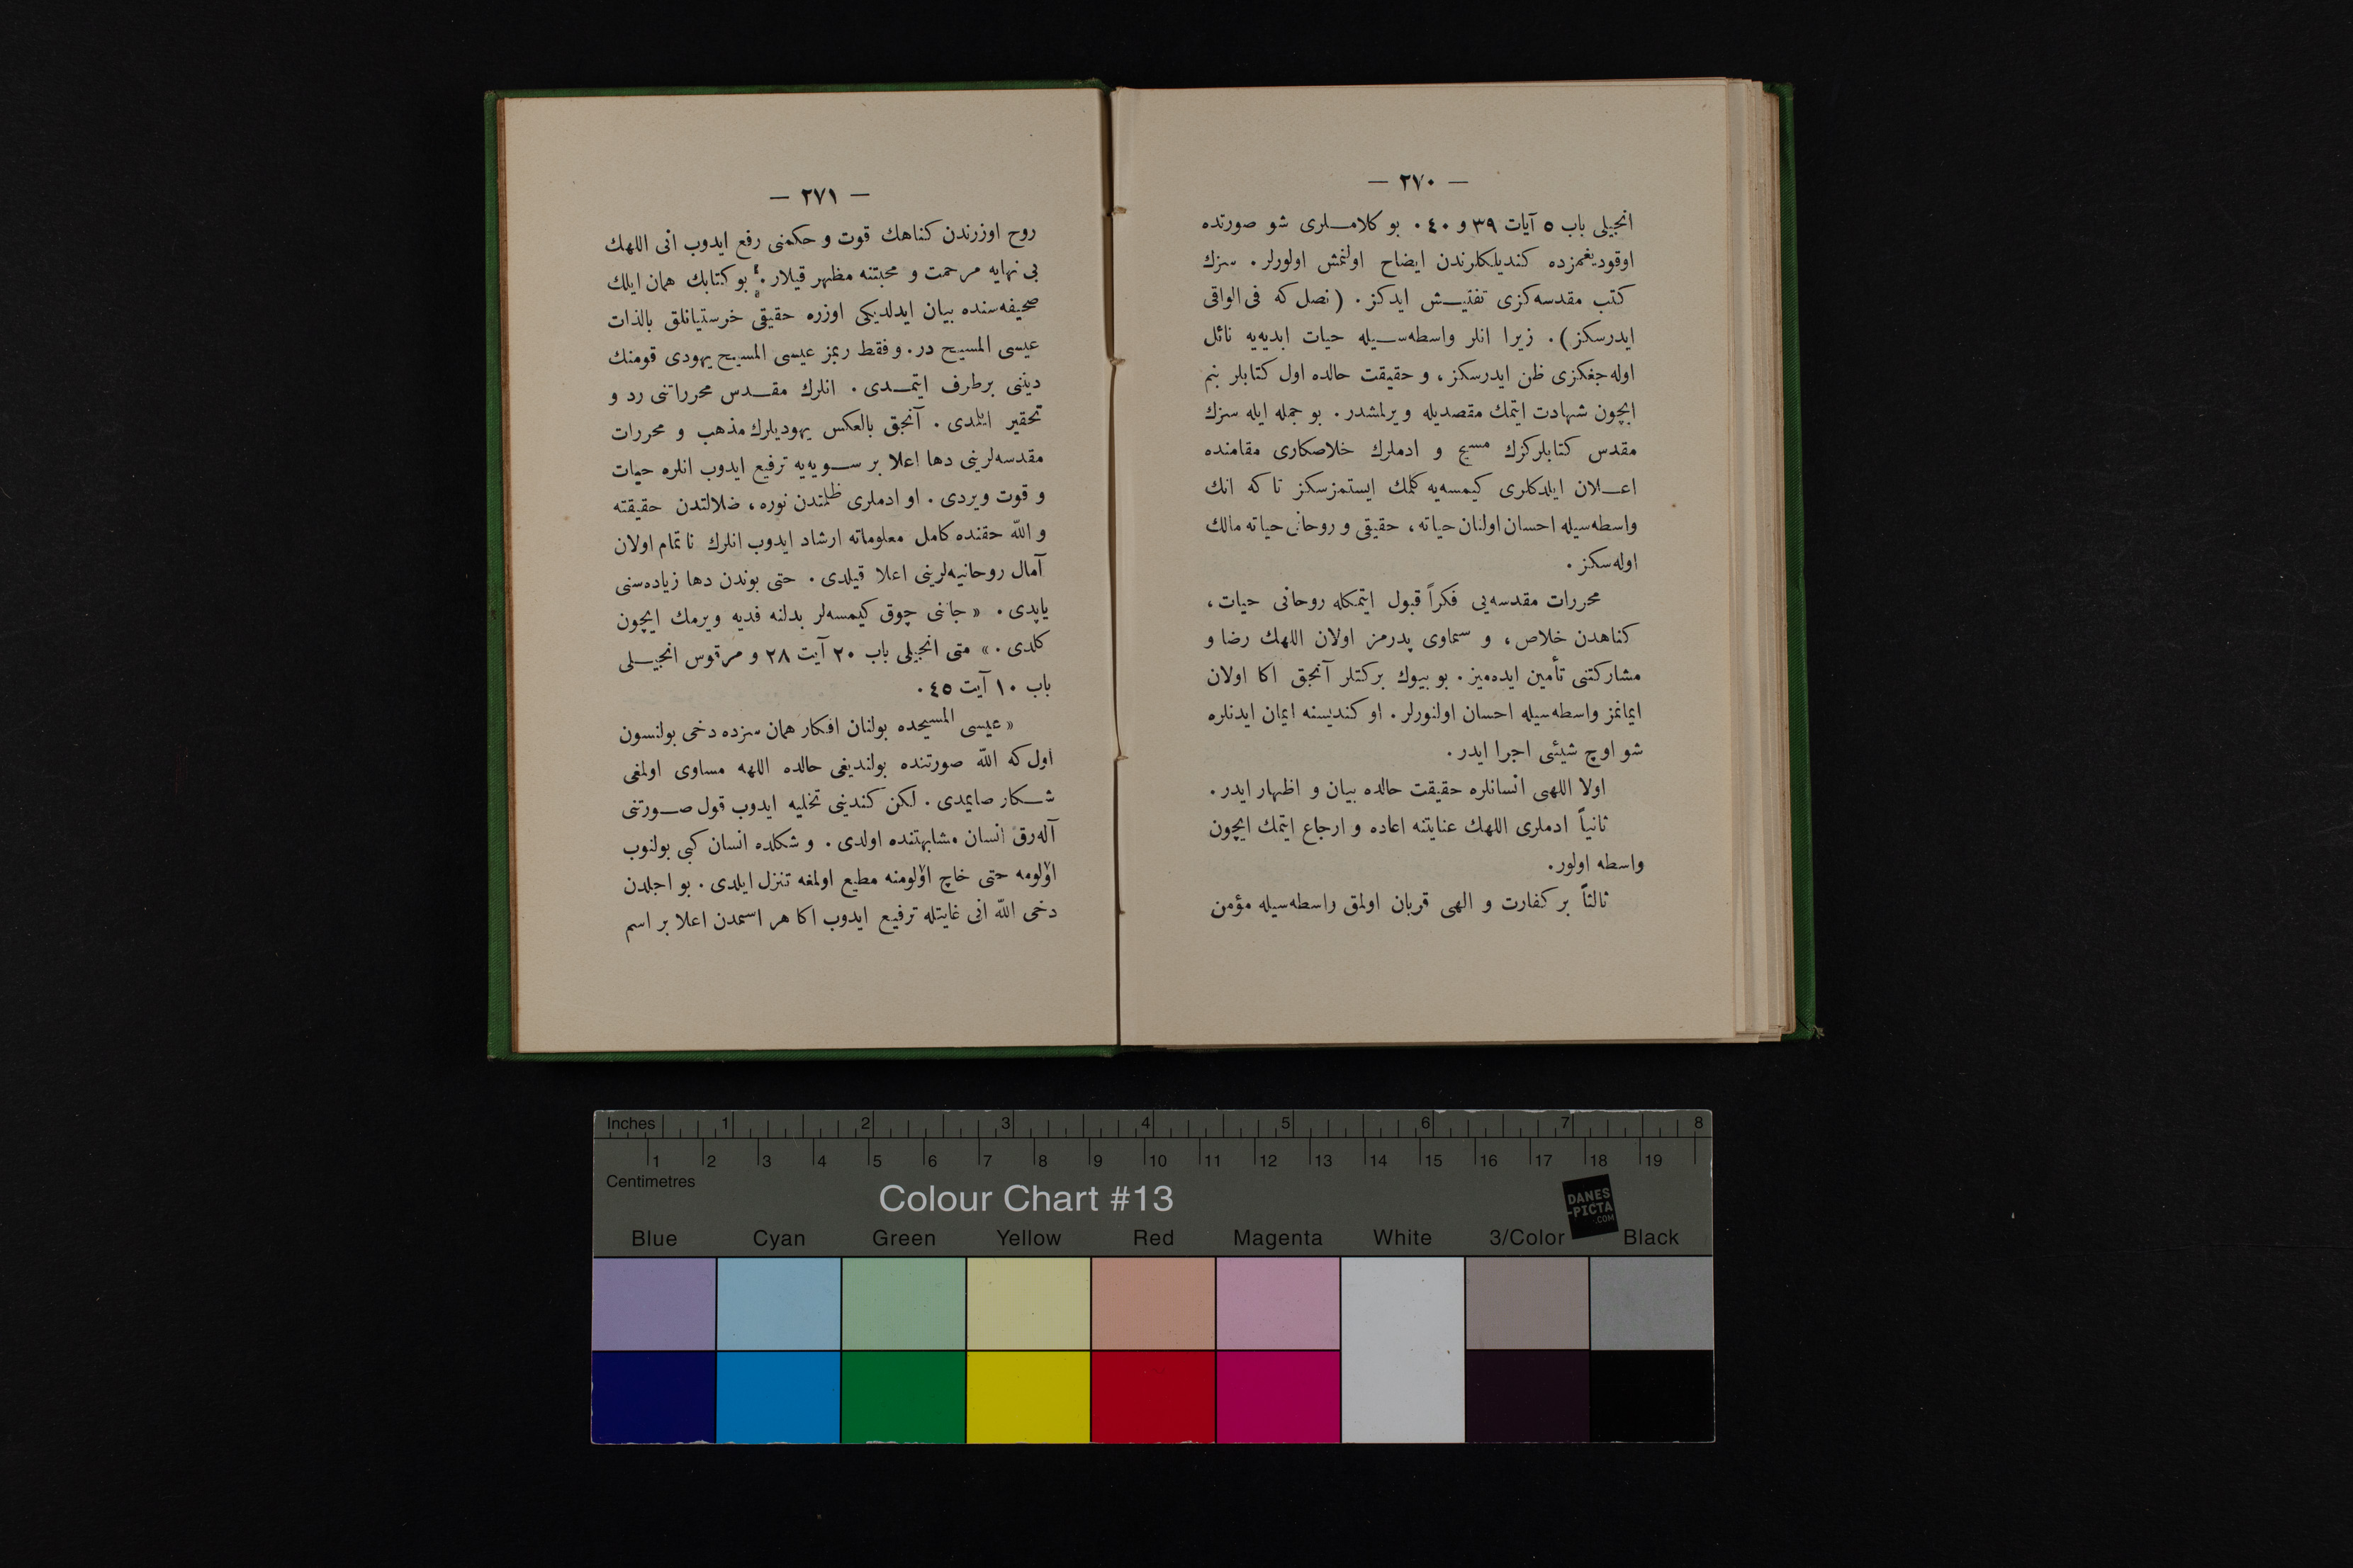 — ٢٧٠ —
انجیلی باب ٥ آیات ٣٩ و ٤٠ . بو کلاملری شو صورتده
اوقودیغمزده کندیلکلرندن ایضاح اولنمش اولورلر . سزك
کتب مقدسه‌کزی تفتیش ایدکز . (نصل که فی الواقی
ایدرسکز) . زیرا انلر واسطه‌سیله حیات ابدیه‌یه نائل
اوله‌جغکزی ظن ایدرسکز ، و حقیقت حالده اول کتابلر بنم
ایچون شهادت ایتمك مقصدیله ویرلمشدر . بو جمله ایله سزك
مقدس کتابلرکزك مسیح و ادملرك خلاصکاری مقامنده
اعلان ایلدکلری کیمسه‌یه کلمك ایستمزسکز تا که انك
واسطه‌سیله احسان اولنان حیاته ، حقیقی و روحانی حیاته مالك
اوله‌سکز .
محررات مقدسه‌یی فکراً قبول ایتمکله روحانی حیات ،
کناهدن خلاص ، و سماوی پدرمز اولان اللهك رضا و
مشارکتنی تأمین ایده‌میز . بو بیوك برکتلر آنجق اکا اولان
ایمانمز واسطه‌سیله احسان اولنورلر . او کندیسنه ایمان ایدنلره
شو اوچ شیئی اجرا ایدر .
اولا اللهی انسانلره حقیقت حالده بیان و اظهار ایدر .
ثانیاً ادملری اللهك عنایتنه اعاده و ارجاع ایتمك ایچون
واسطه اولور .
ثالثاً بر کفارت و الهی قربان اولمق واسطه‌سیله مؤمن
— ٢٧١ —
روح اوزرندن کناهك قوت و حکمنی رفع ایدوب انی اللهك
بی نهایه مرحمت و محبتنه مظهر قیلار . بو کتابك همان ایلك
صحیفه‌سنده بیان ایدلدیکی اوزره حقیقی خرستیانلق بالذات
عیسی المسیح در . و فقط ربمز عیسی المسیح یهودی قومنك
دیننی برطرف ایتمدی . انلرك مقدس محرراتنی رد و
تحقیر ایلمدی . آنجق بالعکس یهودیلرك مذهب و محررات
مقدسه‌لرینی دها اعلا بر سویه‌یه ترفیع ایدوب انلره حیات
و قوت ویردی . او ادملری ظلمتدن نوره ، ضلالتدن حقیقته
و اللّه حقنده کامل معلوماته ارشاد ایدوب انلرك ناتمام اولان
آمال روحانیه‌لرینی اعلا قیلدی . حتی بوندن دها زیاده‌سنی
یاپدی . « جاننی چوق کیمسه‌لر بدلنه فدیه ویرمك ایچون
کلدی . » متی انجیلی باب ٢٠ آیت ٢٨ و مرقوس انجیلی
باب ١٠ آیت ٤٥ .
« عیسی المسیحده بولنان افکار همان سزده دخی بولنسون
اول که اللّه صورتنده بولندیغی حالده اللهه مساوی اولمغی
شکار صایمدی . لکن کندینی تخلیه ایدوب قول صورتنی
آله‌رق انسان مشابهتنده اولدی . و شکلده انسان کبی بولنوب
اؤلومه حتی خاچ اؤلومنه مطیع اولمغه تنزل ایلدی . بو اجلدن
دخی اللّه انی غایتله ترفیع ایدوب اکا هر اسمدن اعلا بر اسم
Inches 1 2 3 4 5 6 7 8
1 2 3 4 5 6 7 8 9 10 11 12 13 14 15 16 17 18 19
Centimetres
Colour Chart #13
DANES
-PICTA
.COM
Blue Cyan Green Yellow Red Magenta White 3/Color Black